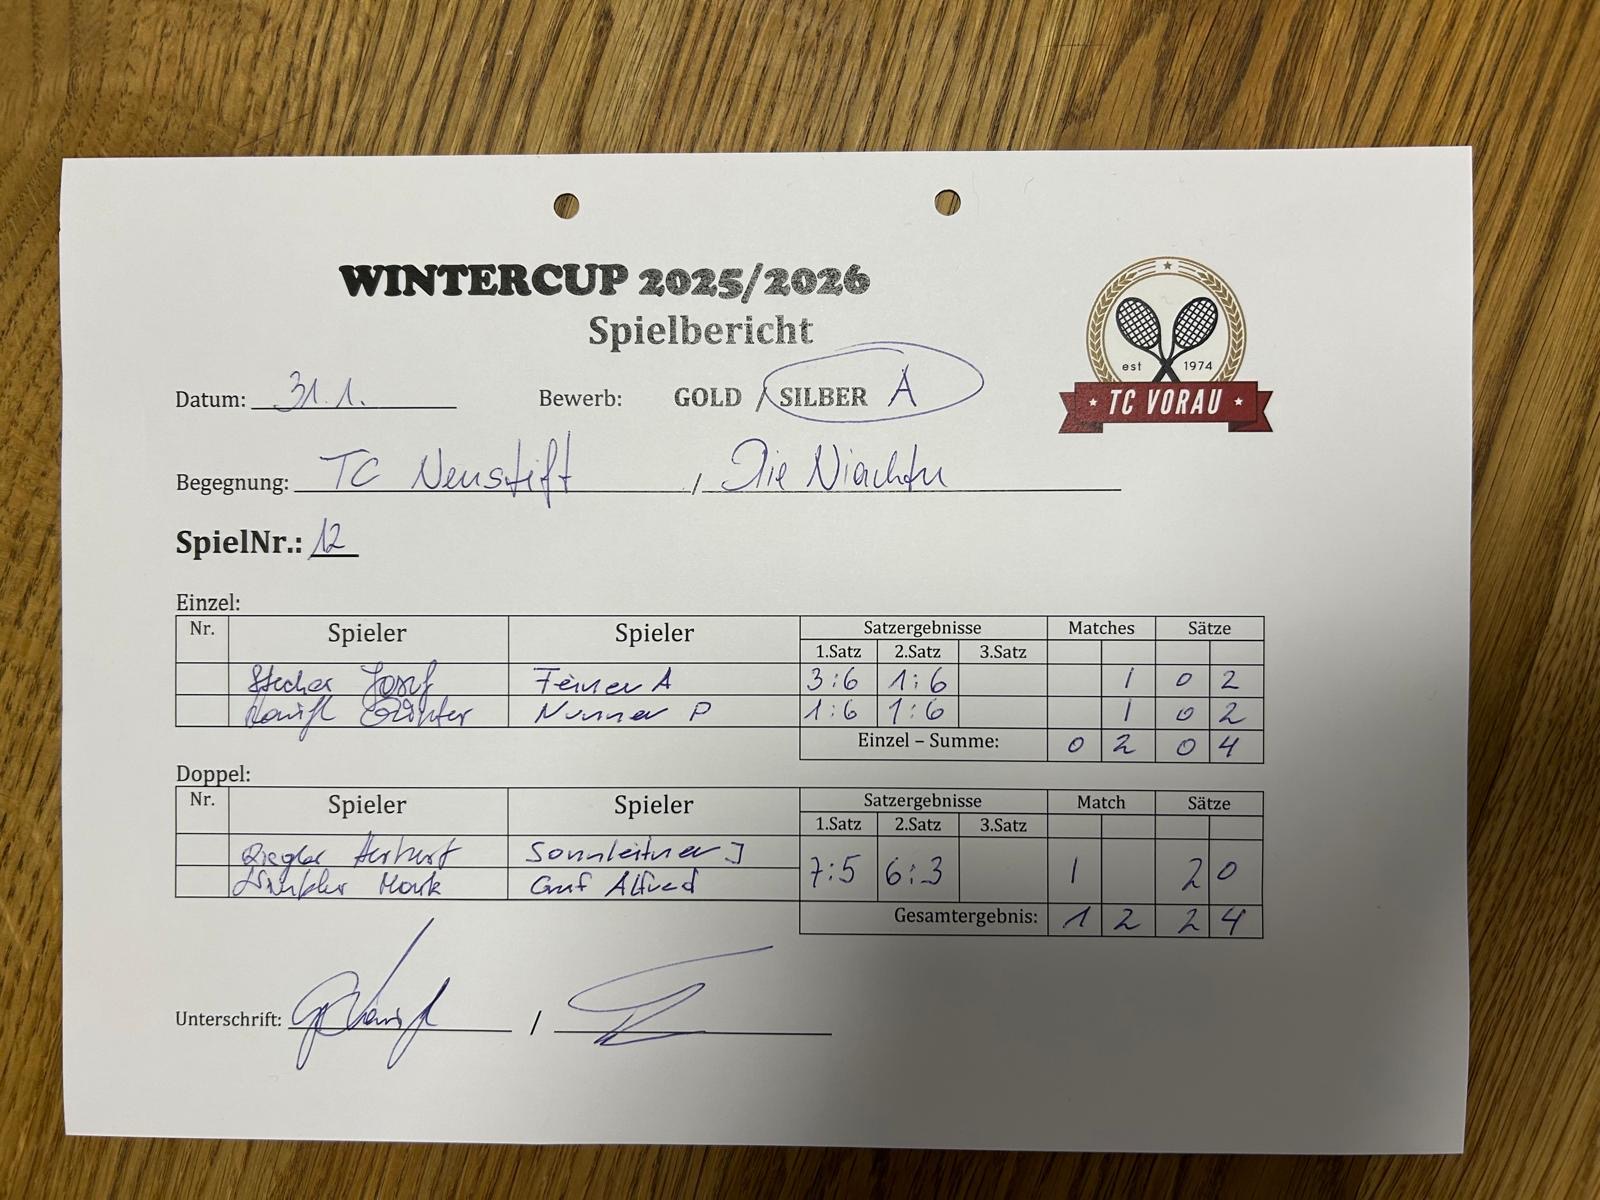 WINTERCUP 2025/2026
Spielbericht
est 1974
TC VORAU
Datum: 31.1. Bewerb: GOLD / SILBER A
Begegnung: TC Neustift / Die
SpielNr.: 12
Einzel:
Nr. Spieler Spieler Satzergebnisse Matches Sätze
1.Satz 2.Satz 3.Satz
Josef A 3:6 1:6 1 0 2
P 1:6 1:6 1 0 2
Einzel – Summe: 0 2 0 4
Doppel:
Nr. Spieler Spieler Satzergebnisse Match Sätze
1.Satz 2.Satz 3.Satz
Herbert Sonnleitner J
7:5 6:3 1 2 0
Mark Graf Alfred
Gesamtergebnis: 1 2 2 4
Unterschrift: /